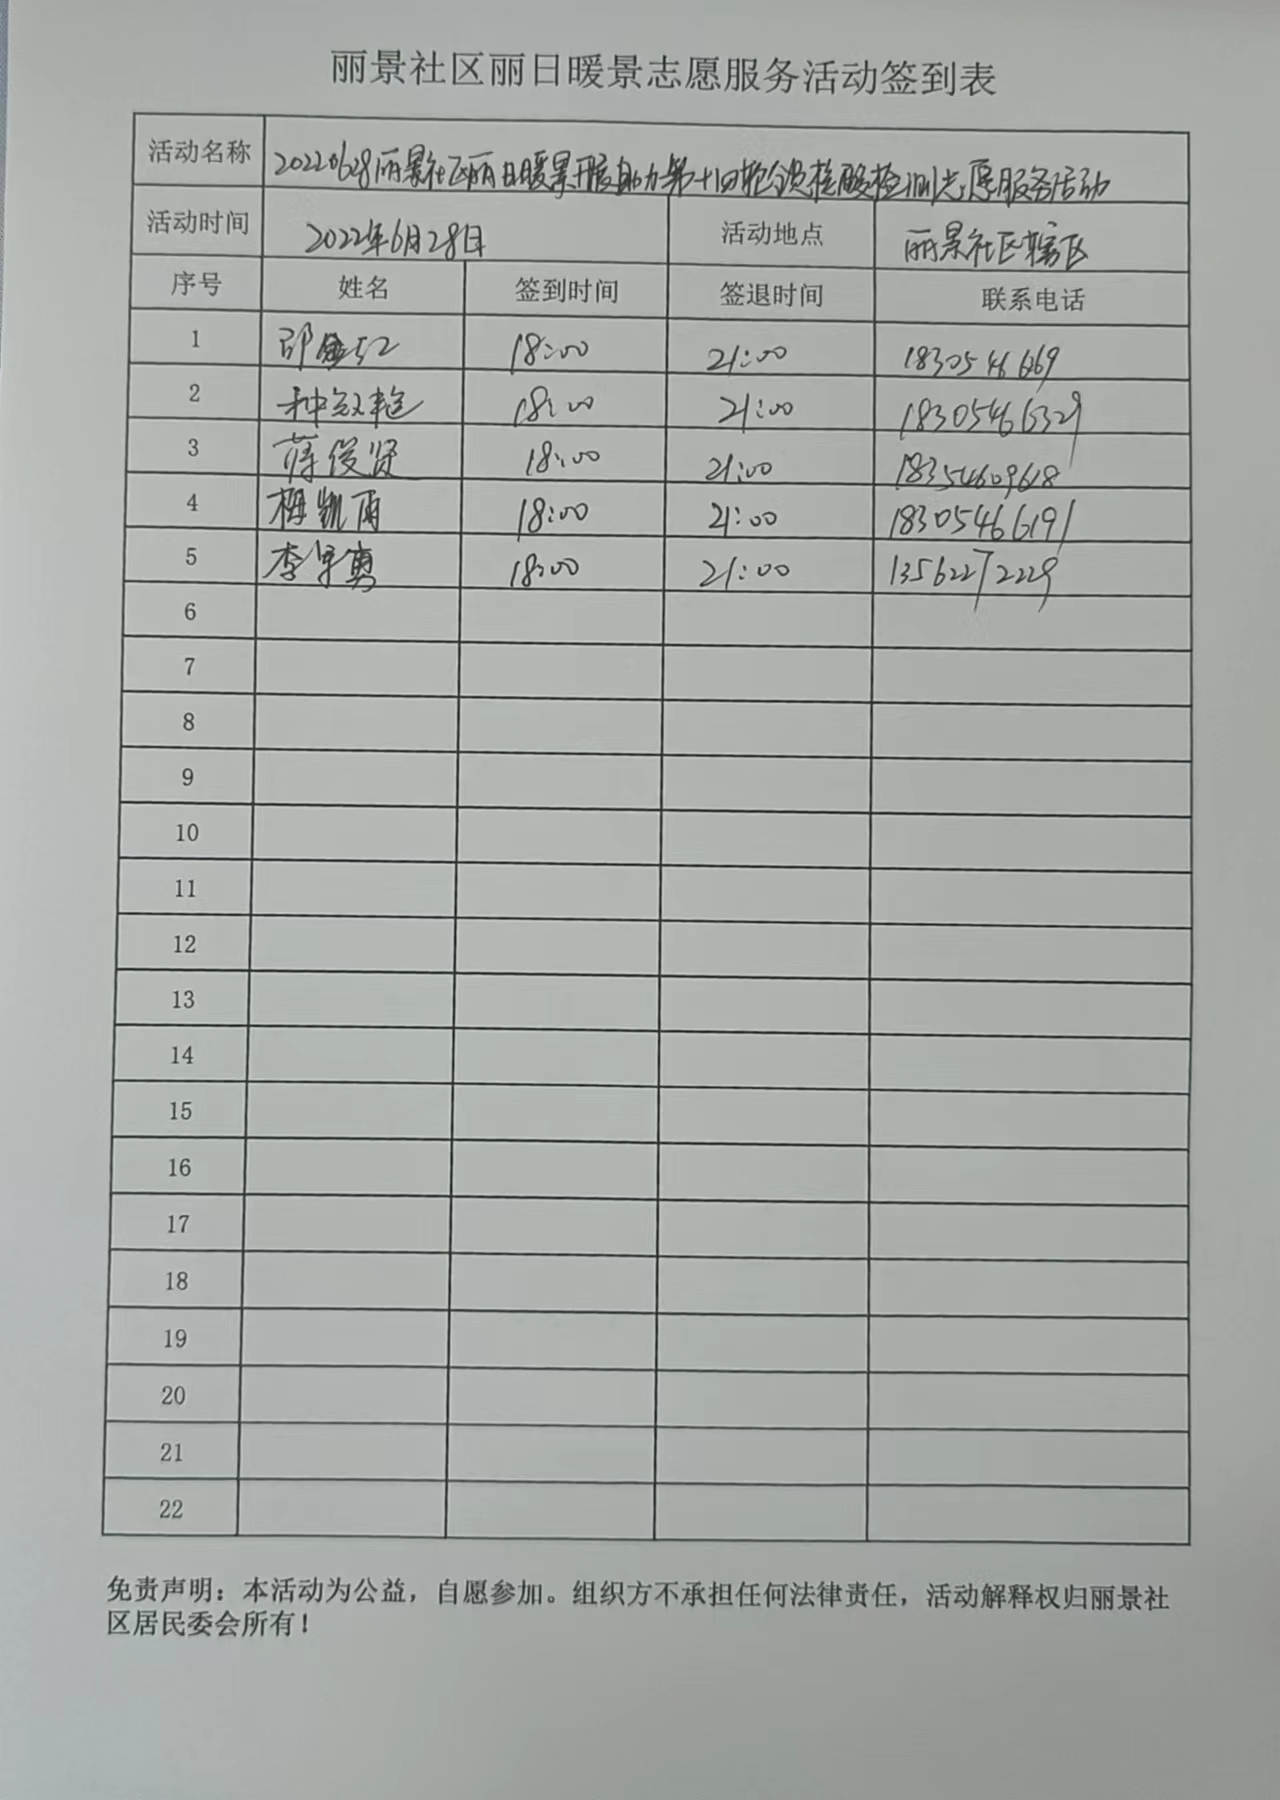 丽景社区丽日暖景志愿服务活动签到表
活动名称 20220628丽景社区丽日暖景开展助力第十四轮全员核酸检测志愿服务活动
活动时间 2022年6月28日 活动地点 丽景社区辖区
序号 姓名 签到时间 签退时间 联系电话
1 18:00 21:00
2 18:00 21:00 18305466329
3 蒋俊贤 18:00 21:00 18354609618
4 梅凯雨 18:00 21:00 18305466191
5 李宇勇 18:00 21:00 13562272229
6
7
8
9
10
11
12
13
14
15
16
17
18
19
20
21
22
免责声明：本活动为公益，自愿参加。组织方不承担任何法律责任，活动解释权归丽景社
区居民委会所有！